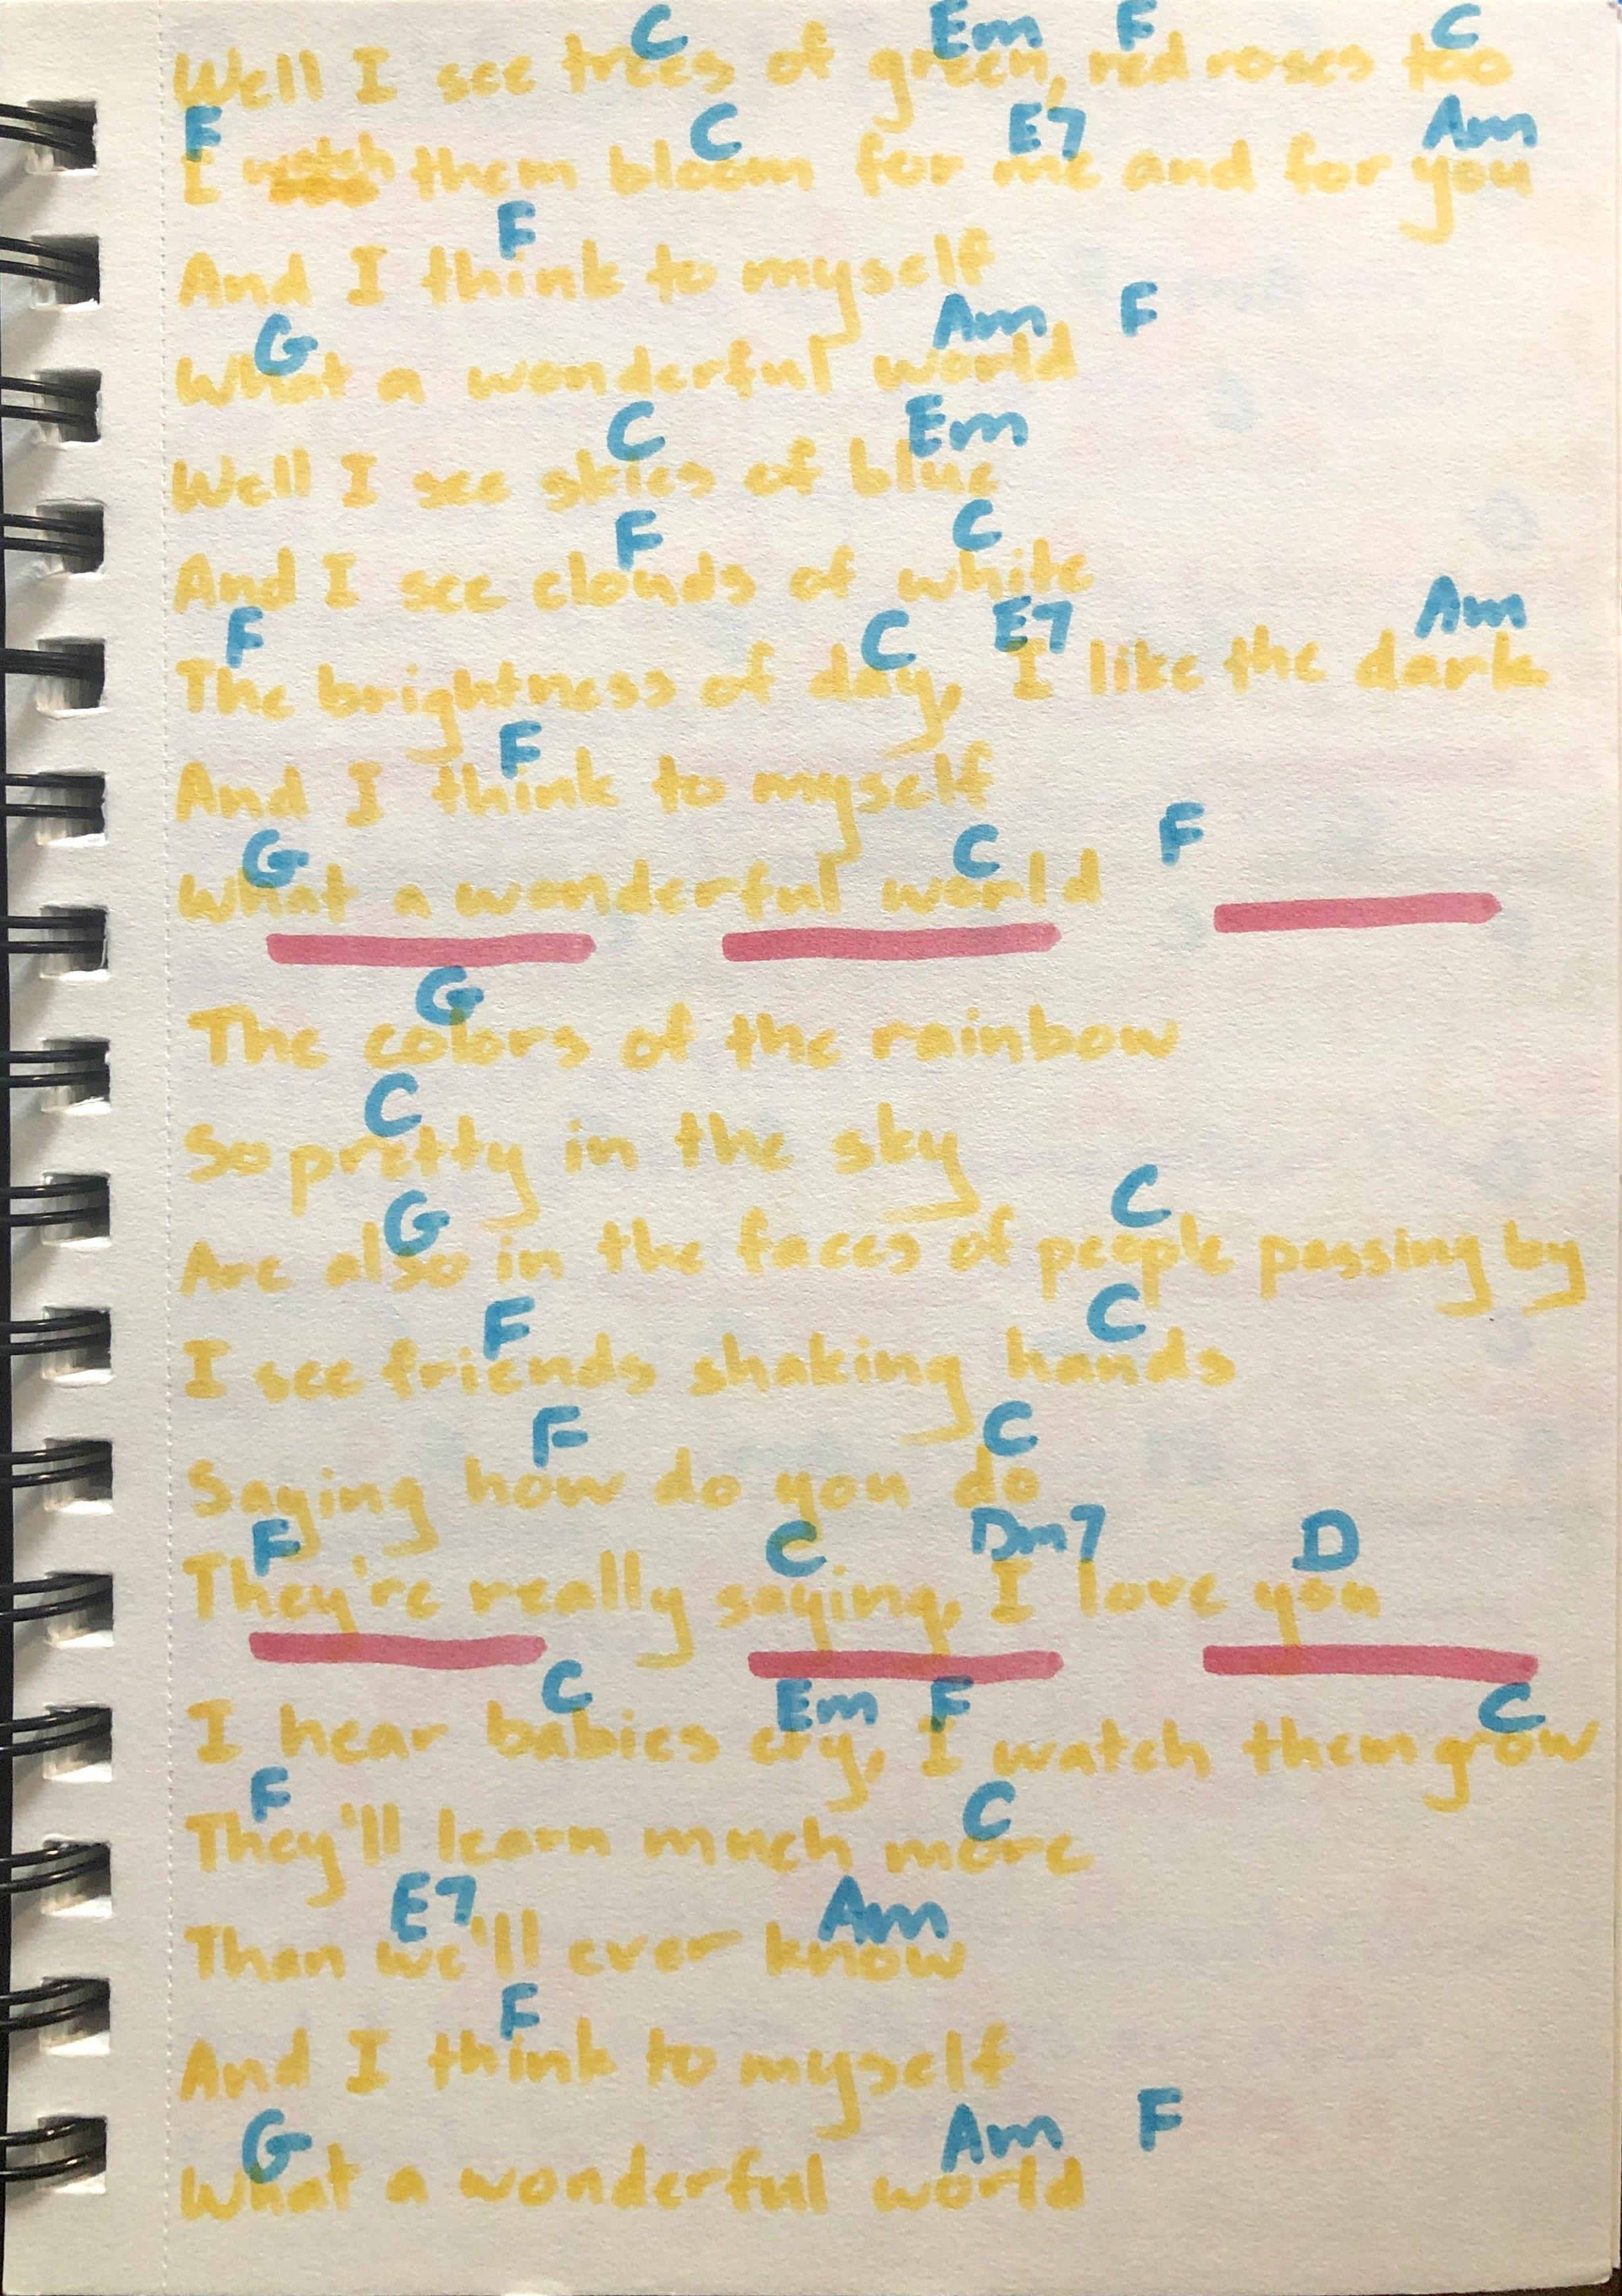 C Em F C
Well I see trees of green, red roses too
F C E7 Am
I watch them bloom for me and for you
F
And I think to myself
G Am F
What a wonderful world
C Em
Well I see skies of blue
F C
And I see clouds of white
F C E7 Am
The brightness of day, I like the dark
F
And I think to myself
G C F
What a wonderful world
G
The colors of the rainbow
C
So pretty in the sky
G C
Are also in the faces of people passing by
F C
I see friends shaking hands
F C
Saying how do you do
F C Dm7 D
They're really saying, I love you
C Em F C
I hear babies cry, I watch them grow
F C
They'll learn much more
E7 Am
Than we'll ever know
F
And I think to myself
G Am F
What a wonderful world